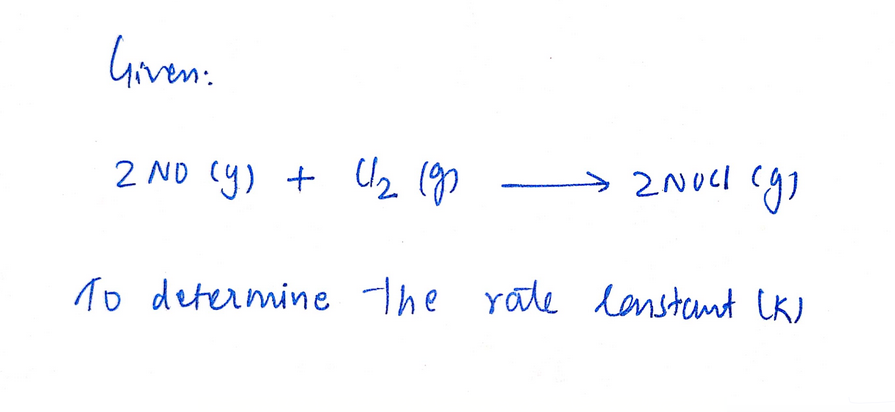 Given:
2 NO (g) + Cl2 (g) ⟶ 2NOCl (g)
To determine the rate constant (K)